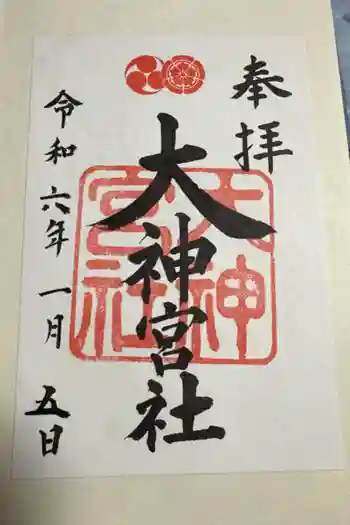 奉拝
大神宮社
大神宮社
令和六年一月五日